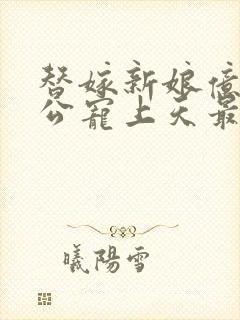 替嫁新娘億
公寵上天最
曦陽雪